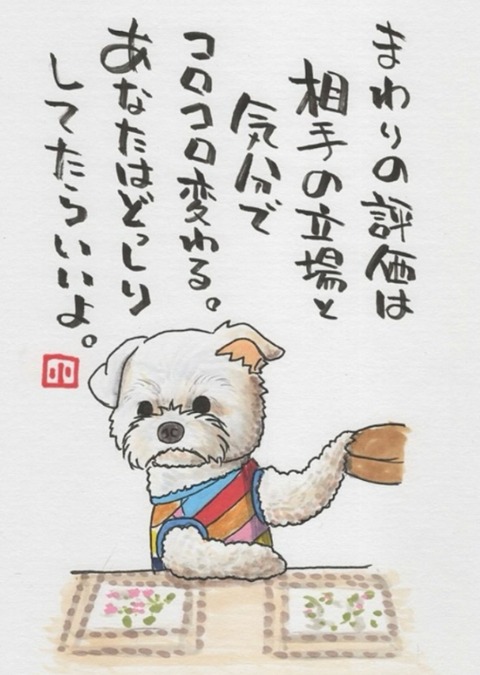 まわりの評価は
相手の立場と
気分で
コロコロ変わる。
あなたはどっしり
してたらいいよ。
小